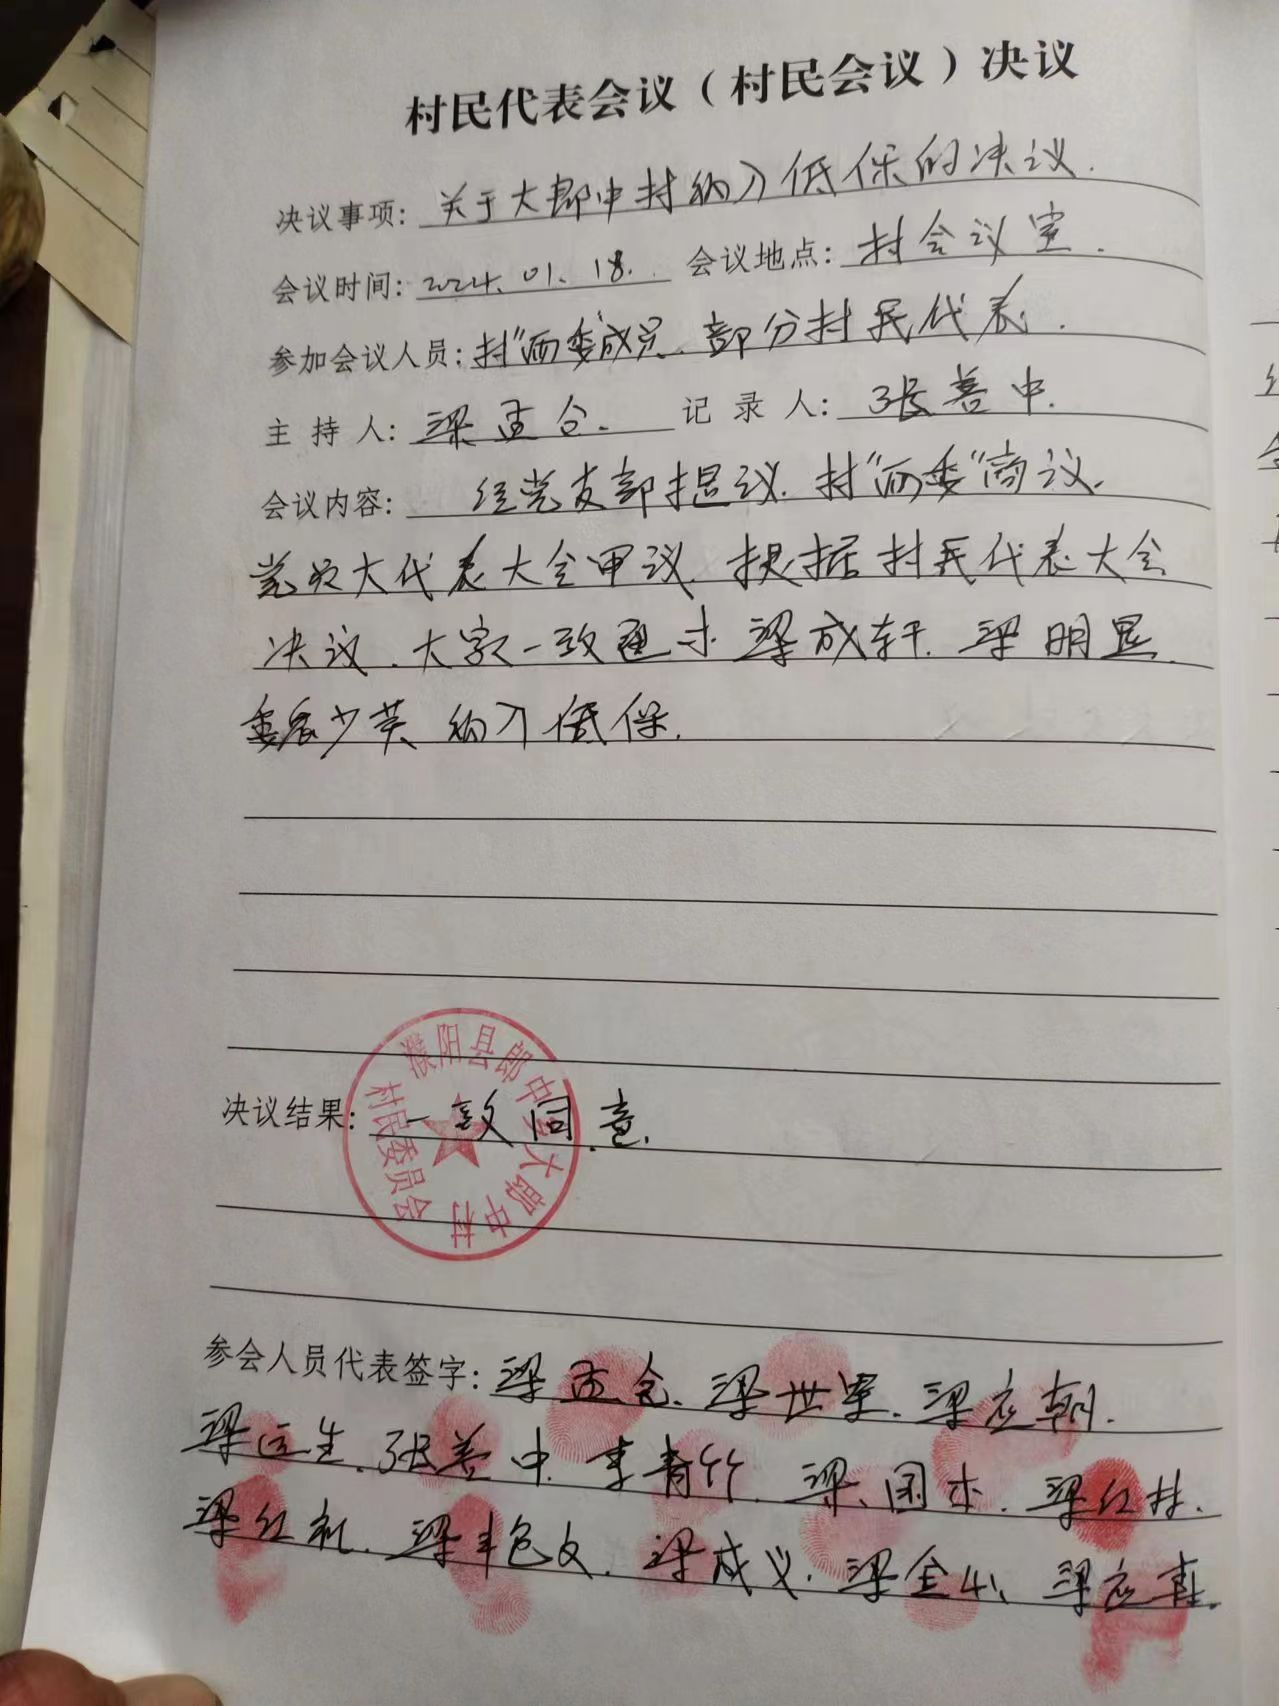 村民代表会议（村民会议）决议
决议事项：关于大郎中村纳入低保的决议.
会议时间：2024.01.18. 会议地点：村会议室.
参加会议人员：村"两委"成员、部分村民代表.
主持人： 梁孟合. 记录人：张善中.
会议内容： 经党支部提议.村"两委"商议.
党员大代表大会审议.根据村民代表大会
决议.大家一致通过 梁成轩.梁明显.
魏少英 纳入低保.
濮阳县郎中乡大郎中村
村民委员会
决议结果：一致同意.
参会人员代表签字：梁孟合.梁世军.梁应朝.
梁运生.张善中.李青竹.梁国杰.梁红村.
梁红礼.梁艳文.梁成义.梁金山.梁应春.